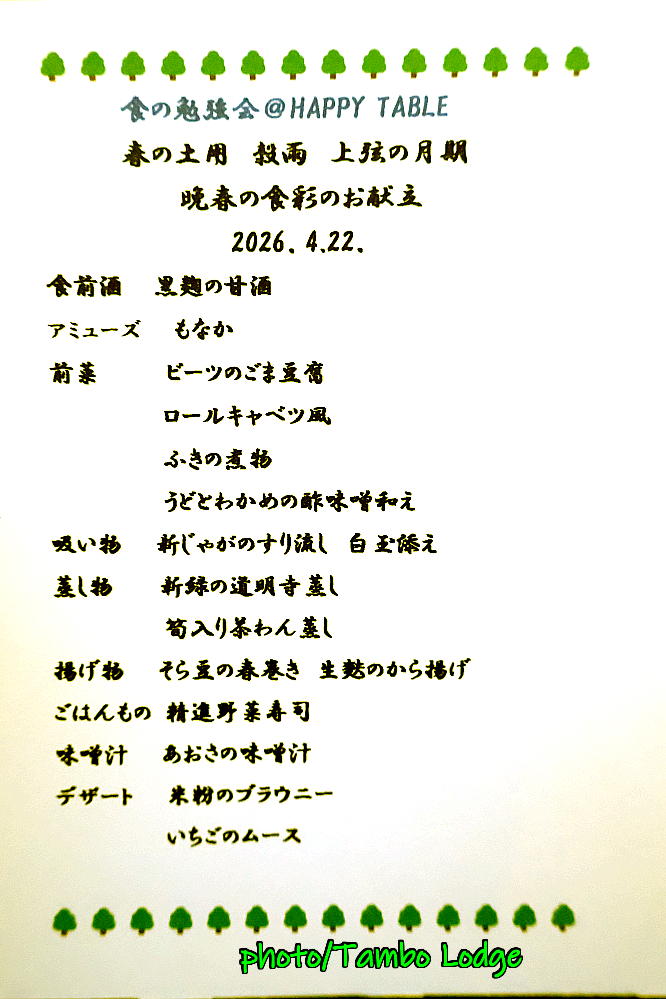 食の勉強会@HAPPY TABLE
春の土用 穀雨 上弦の月期
晩春の食彩のお献立
2026. 4.22.
食前酒 黒麹の甘酒
アミューズ もなか
前菜 ビーツのごま豆腐
ロールキャベツ風
ふきの煮物
うどとわかめの酢味噌和え
吸い物 新じゃがのすり流し 白玉添え
蒸し物 新緑の道明寺蒸し
筍入り茶わん蒸し
揚げ物 そら豆の春巻き 生麩のから揚げ
ごはんもの 精進野菜寿司
味噌汁 あおさの味噌汁
デザート 米粉のブラウニー
いちごのムース
photo/Tambo Lodge